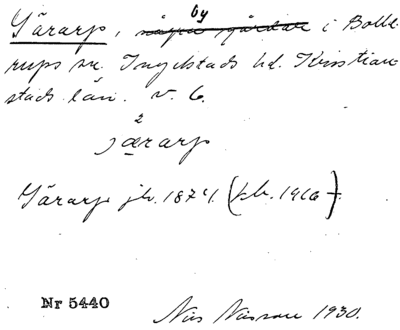 by
Gärarp, några gårdar i Bolle-
rups sn. Ingelstads hd. Kristian-
stads län. v. 6.
2
järarp
Gärarp jb. 1874. (kb. 1916 +
Nr 5440
Nils Nilsson 1930.